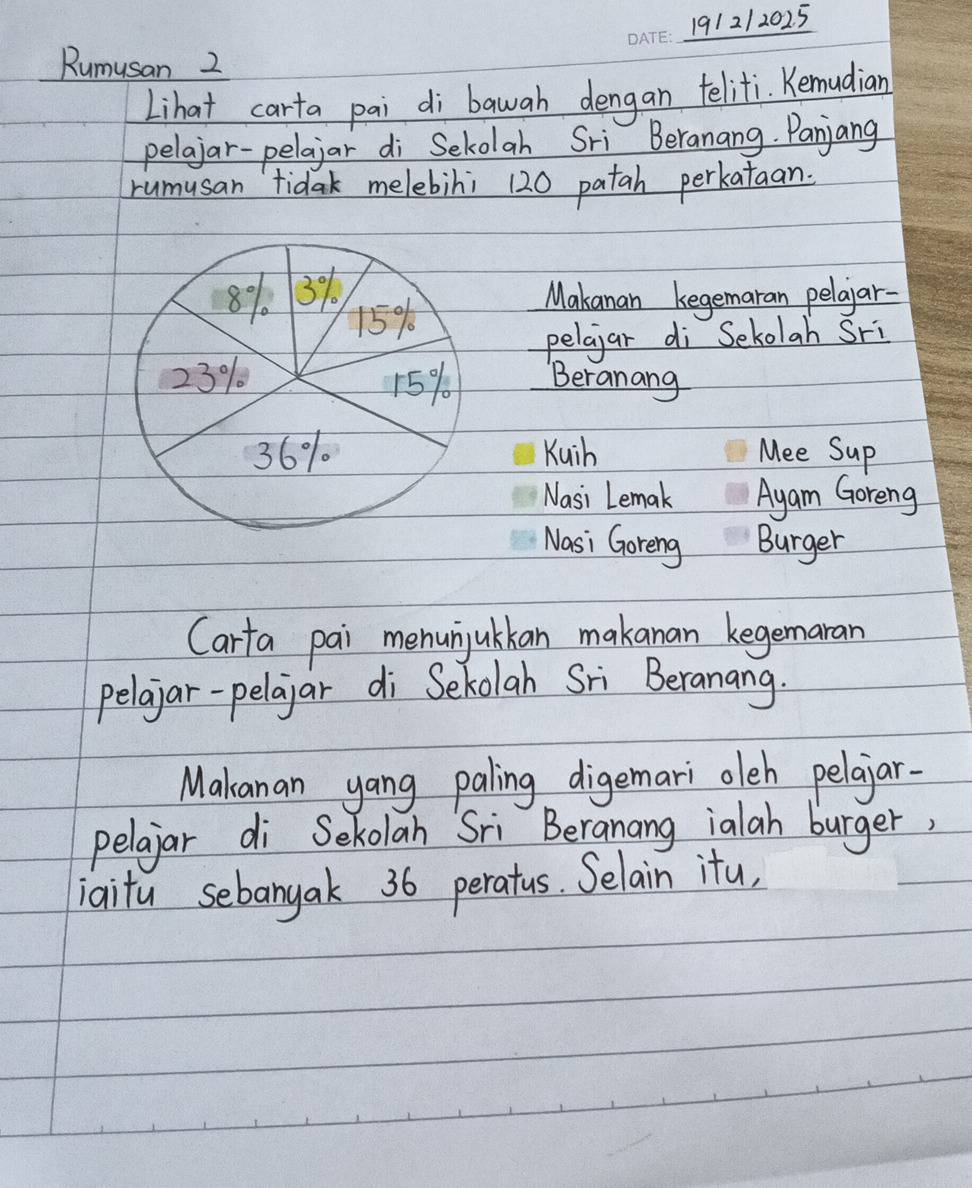 DATE: 19/2/2025
Rumusan 2
Lihat carta pai di bawah dengan teliti. Kemudian
pelajar-pelajar di Sekolah Sri Beranang. Panjang
rumusan tidak melebihi 120 patah perkataan.
8%
3%
15%
23%
15%
36%
Makanan kegemaran pelajar-
pelajar di Sekolah Sri
Beranang
Kuih
Mee Sup
Nasi Lemak
Ayam Goreng
Nasi Goreng
Burger
Carta pai menunjukkan makanan kegemaran
pelajar-pelajar di Sekolah Sri Beranang.
Makanan yang paling digemari oleh pelajar-
pelajar di Sekolah Sri Beranang ialah burger,
iaitu sebanyak 36 peratus. Selain itu,